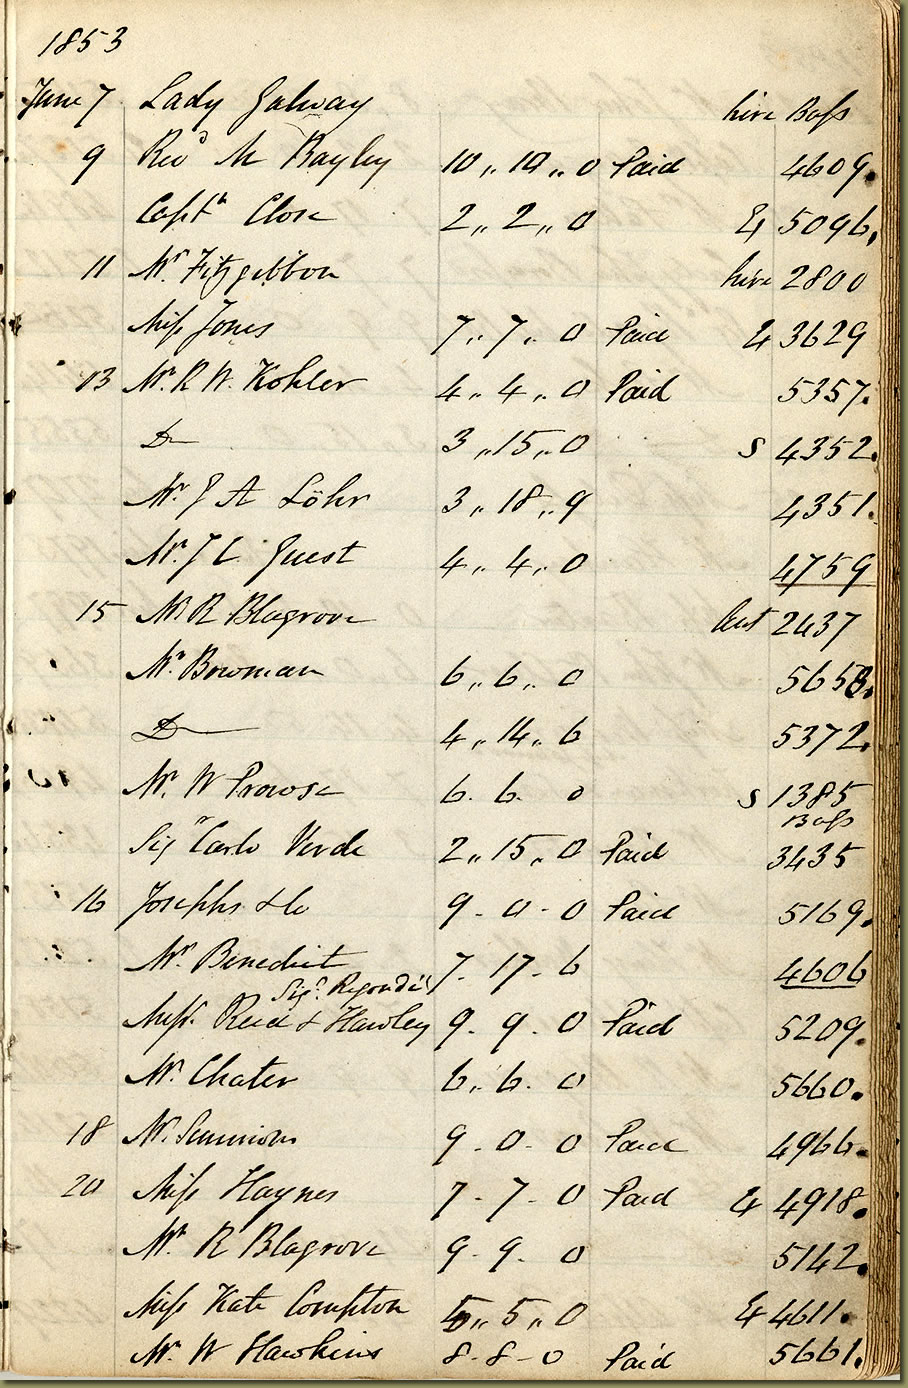 1853
June 7 Lady Galway hire Bass
9 Revd M Bayley 10,, 10,, 0 Paid 4609.
Captn Close 2,, 2,, 0 & 5096.
11 Mr Fitzgibbon hire 2800
Miss Jones 7,, 7,, 0 Paid & 3629
13 Mr R W. Kohler 4,, 4,, 0 Paid 5357.
Do 3,, 15,, 0 S 4352.
Mr J A Löhr 3,, 18,, 9 4351.
Mr J C Guest 4,, 4,, 0 4759
15 Mr R Blagrove 2437
Mr Bowman 6,, 6,, 0 5653.
Do 4,, 14,, 6 5372.
Mr. W Prowse 6. 6. 0 S 1385
Bass
Sigr Carlo Verde 2,, 15,, 0 Paid 3435
16 Josephs & Co 9 - 0 - 0 Paid 5169.
Mr. Benedict 7 - 17 - 6 4606
Sigr Regondi's
Miss. Reid & Hawley 9 . 9 . 0 Paid 5209.
Mr. Chater 6,, 6. 0 5660.
18 Mr. Simmons 9 - 0 - 0 Paid 4966.
20 Miss Haynes 7 - 7 - 0 Paid & 4918.
Mr. R Blagrove 9 - 9 - 0 5142.
Miss Kate Compton 5,, 5,, 0 & 4611.
Mr. W Hawkins 8 - 8 - 0 Paid 5661.